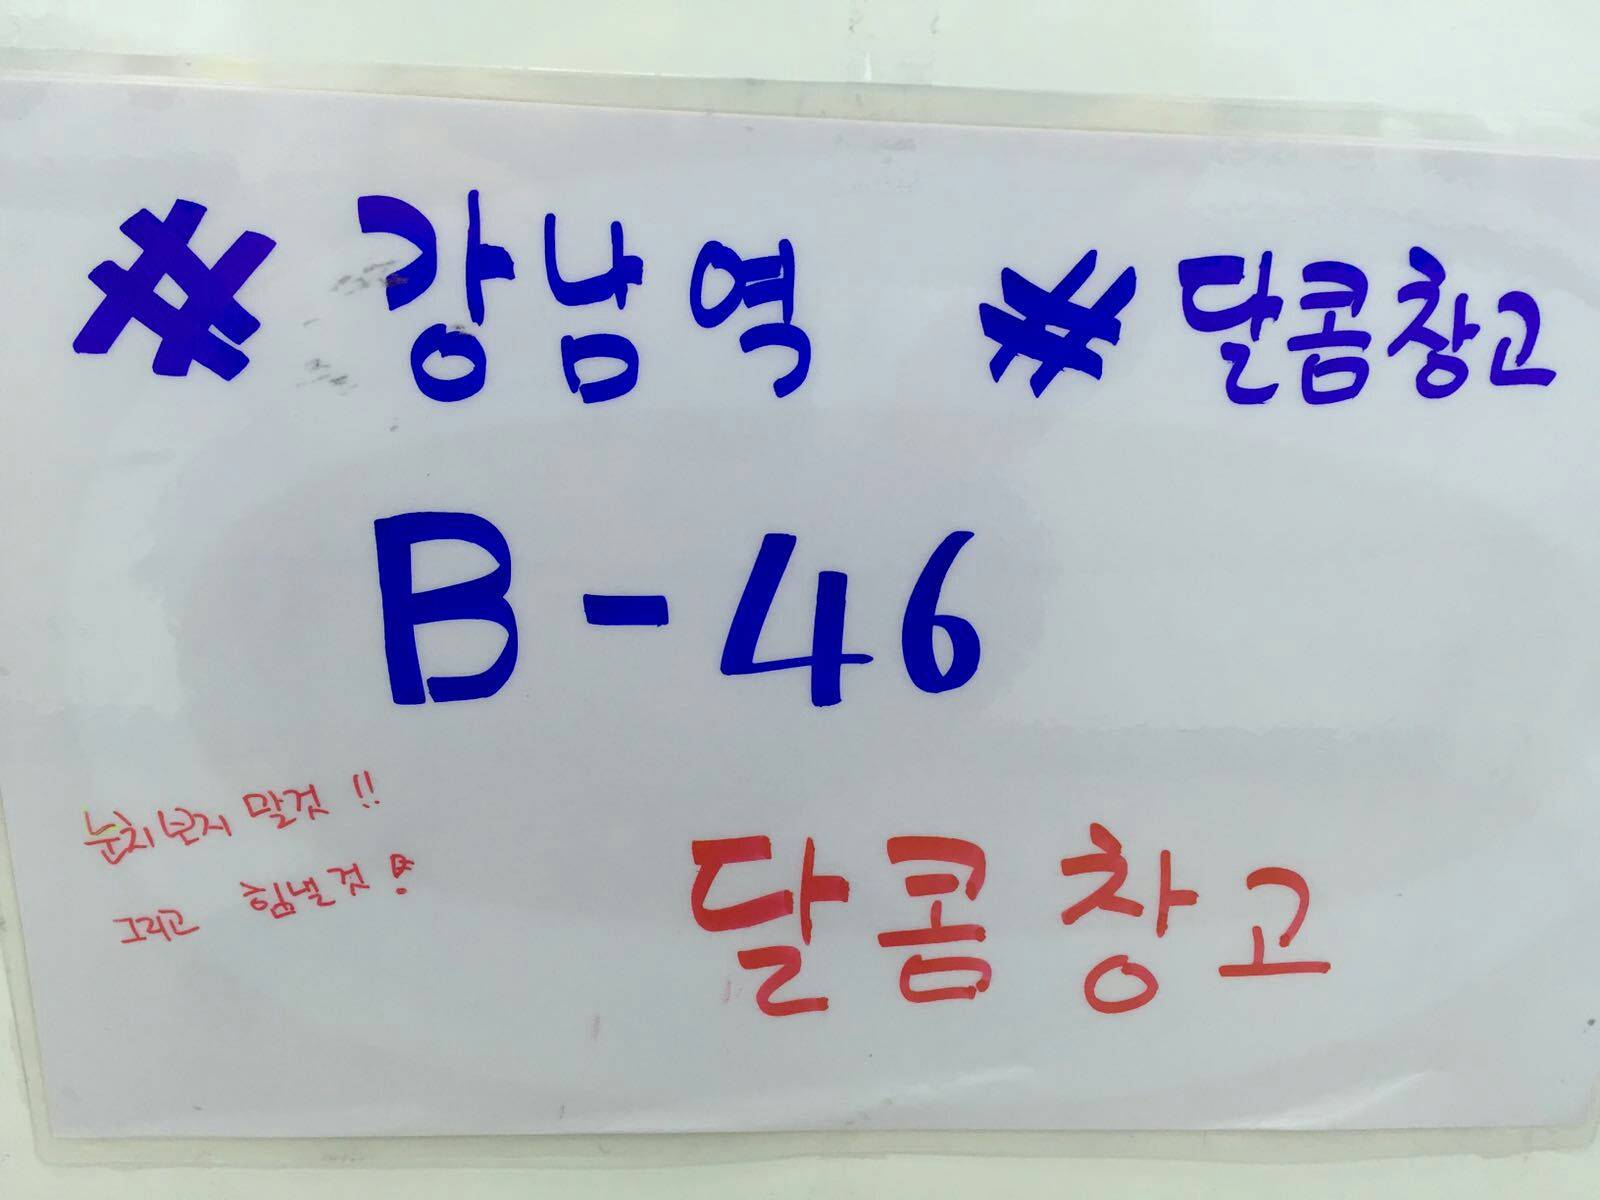 #강남역 #달콤창고
B-46
눈치보지 말것!!
그리고 힘낼것!
달콤창고